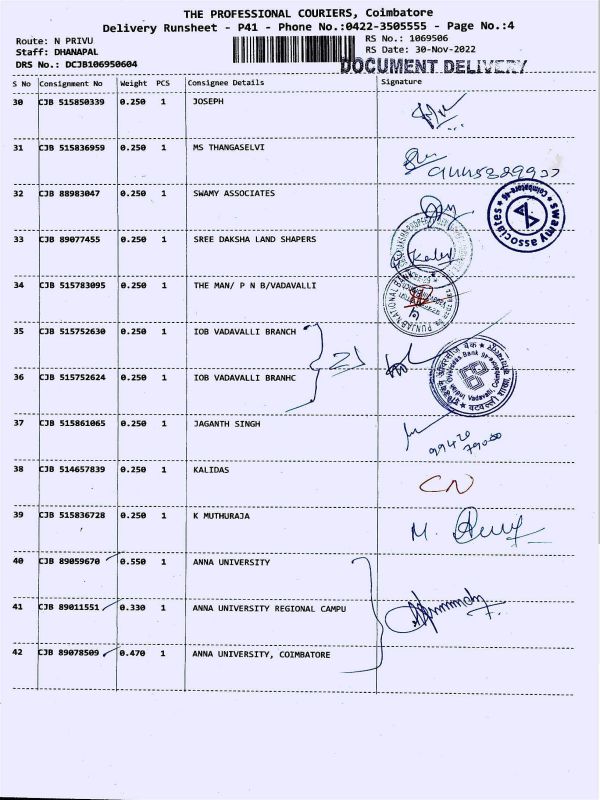 THE PROFESSIONAL COURIERS, Coimbatore
Delivery Runsheet - P41 - Phone No.:0422-3505555 - Page No.:4
Route: N PRIVU
RS No.: 1069506
Staff: DHANAPAL
RS Date: 30-Nov-2022
DRS No.: DCJB106950604
DOCUMENT DELIVERY
S No Consignment No Weight PCS Consignee Details Signature
30 CJB 515850339 0.250 1 JOSEPH
31 CJB 515836959 0.250 1 MS THANGASELVI
32 CJB 88983047 0.250 1 SWAMY ASSOCIATES
swamy associates
Coimbatore
33 CJB 89077455 0.250 1 SREE DAKSHA LAND SHAPERS
34 CJB 515783095 0.250 1 THE MAN/ P N B/VADAVALLI
PUNJAB NATIONAL BANK
35 CJB 515752630 0.250 1 IOB VADAVALLI BRANCH
36 CJB 515752624 0.250 1 IOB VADAVALLI BRANHC
Overseas Bank
Vadavalli
37 CJB 515861065 0.250 1 JAGANTH SINGH
99420
79000
38 CJB 514657839 0.250 1 KALIDAS
CN
39 CJB 515836728 0.250 1 K MUTHURAJA
M.
40 CJB 89059670 0.550 1 ANNA UNIVERSITY
41 CJB 89011551 0.330 1 ANNA UNIVERSITY REGIONAL CAMPU
42 CJB 89078509 0.470 1 ANNA UNIVERSITY, COIMBATORE